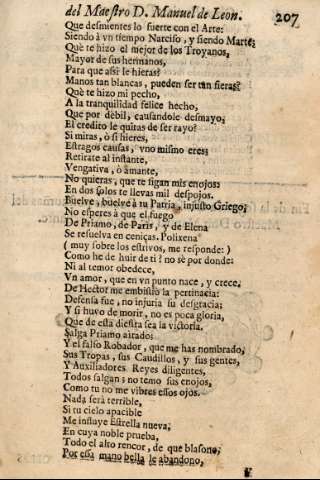 del Maestro D. Manuel de Leon. 207
Que desmientes lo fuerte con el Arte:
Siendo à vn tiempo Narciso, y siendo Marte;
Què te hizo el mejor de los Troyanos,
Mayor de sus hermanos,
Para que assi le hieras?
Manos tan blancas, pueden ser tan fieras?
Què te hizo mi pecho,
A la tranquilidad felice hecho,
Que por dèbil, causandole desmayo,
El credito le quitas de ser rayo?
Si miras, ò si hieres,
Estragos causas, vno mismo eres;
Retirate al instante,
Vengativa, ò amante,
No quieras, que te sigan mis enojos:
En dos solos te llevas mil despojos.
Buelve, buelve à tu Patria, injusto Griego;
No esperes à que el fuego
De Priamo, de Paris, y de Elena
Se resuelva en ceniças. Polixena
( muy sobre los estrivos, me responde: )
Como he de huir de ti? no sè por donde:
Ni al temor obedece,
Vn amor, que en vn punto nace, y crece.
De Hector me embistiò la pertinacia:
Defensa fue, no injuria su desgracia;
Y si huvo de morir, no es poca gloria,
Que de esta diestra sea la victoria.
Salga Priamo airado:
Y el falso Robador, que me has nombrado,
Sus Tropas, sus Caudillos, y sus gentes,
Y Auxiliadores Reyes diligentes,
Todos salgan; no temo sus enojos,
Como tu no me vibres essos ojos.
Nada serà terrible,
Si tu cielo apacible
Me influye Estrella nueva;
En cuya noble prueba,
Todo el alto rencor, de que blasono;
Por essa mano bella le abandono,